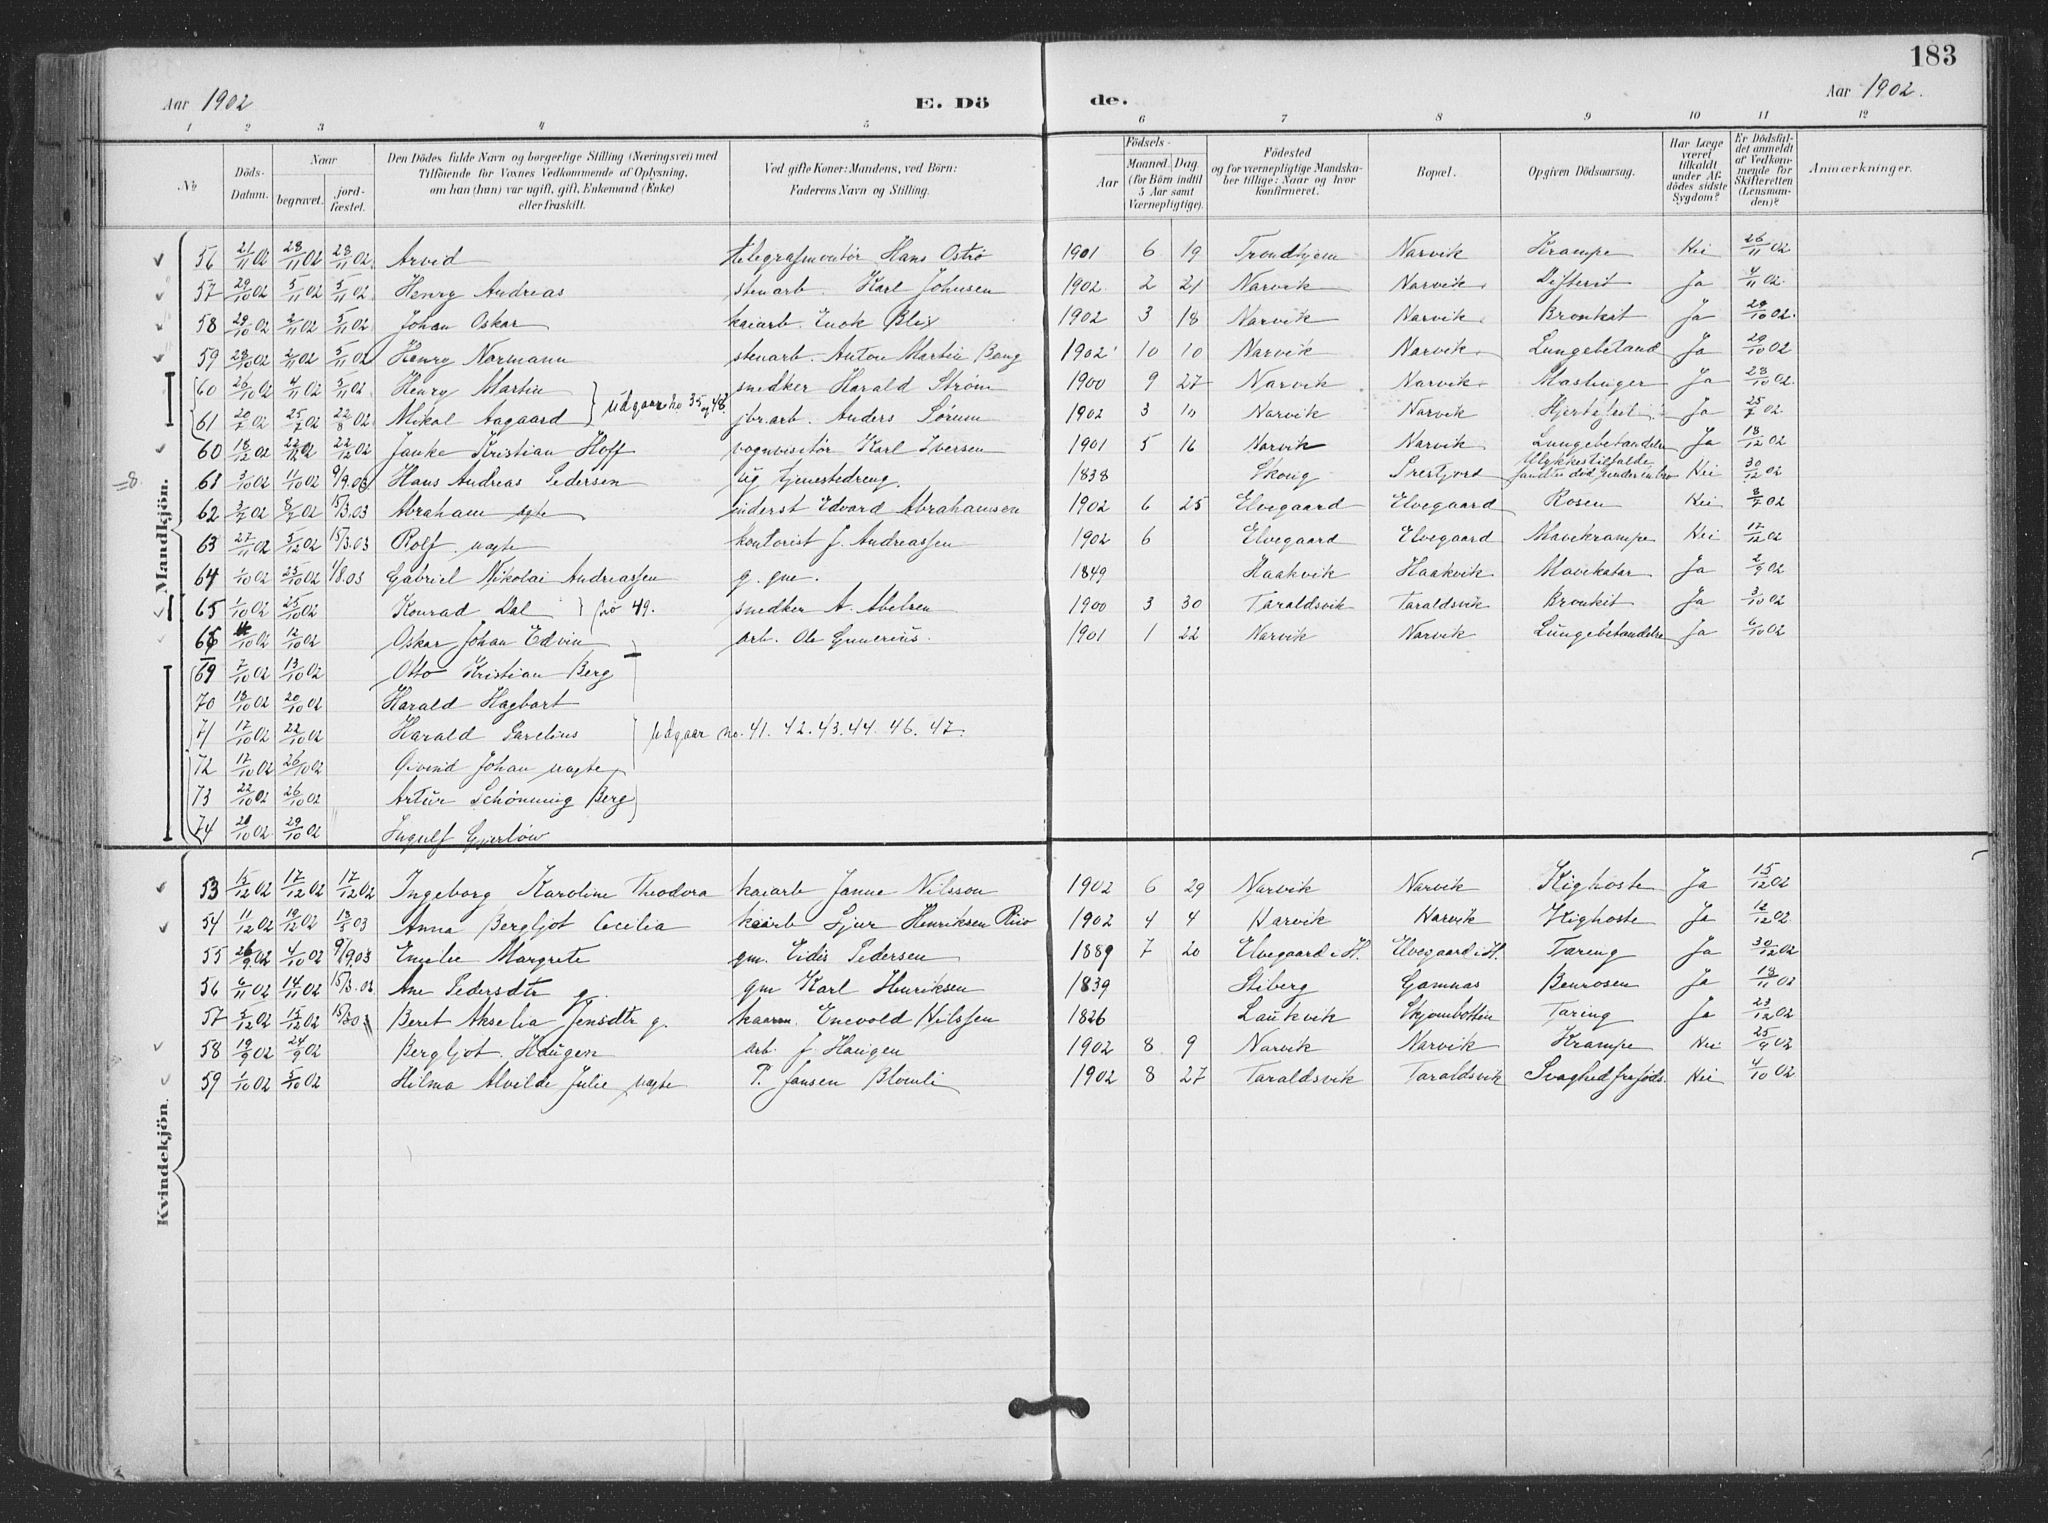 183
Aar 1902
E. Dö
de.
Aar 1902.
1 2 3 4 5 6 7 8 9 10 11 12
No
Döds-Datum.
Naar
begravet.
jord-fæstet.
Den Dödes fulde Navn og borgerlige Stilling (Næringsvei) med
Tilföiende for Voxnes Vedkommende af Oplysning,
om han (hun) var ugift, gift, Enkemand (Enke)
eller fraskilt.
Ved gifte Koner: Mandens, ved Börn:
Faderens Navn og Stilling.
Födsels-
Aar
Maaned. Dag.
(for Börn indtil
5 Aar samt
Værnepligtige).
Födested
og for værnepligtige Mandska-
ber tillige: Naar og hvor
konfirmeret.
Bopæl.
Opgiven Dödsaarsag.
Har Læge
været
tilkaldt
under Af-
dödes sidste
Sygdom?
Er Dödsfal-
det anmeldt
af Vedkom-
mende for
Skifteretten
(Lensman-
den)?
Anmærkninger.
Mandkjön.
56 21/11 02 28/11 02 28/11 02 Arvid telegrafmontör Hans Oströ 1901 6 19 Trondhjem Narvik Krampe Nei 26/11 02
57 29/10 02 5/11 02 5/11 02 Henry Andreas stenarb. Karl Johnsen 1902 2 21 Narvik Narvik Difterit Ja 4/11 02
58 29/10 02 2/11 02 5/11 02 Johan Oskar kaiarb. Enok Blix 1902 3 18 Narvik Narvik Bronkit Ja 29/10 02
59 28/10 02 2/11 02 5/11 02 Henry Normann stenarb. Anton Martin Bang 1902 10 10 Narvik Narvik Lungebetænd Ja 29/10 02
60 26/10 02 4/11 02 5/11 02 Henry Martin } udgaar no 35 og 48. snedker Harald Ström 1900 9 27 Narvik Narvik Meslinger Ja 28/10 02
61 20/7 02 25/7 02 22/8 02 Mikal Aagaard jbr.arb. Anders Sörum 1902 3 11 Narvik Narvik Hjertefeil Ja 25/7 02
60 18/12 02 22/12 02 22/12 02 Janke Kristian Hoff vognvisitör Karl Iversen 1901 5 16 Narvik Narvik Lungebetændelse Ja 18/12 02
61 3/10 02 11/10 02 Hans Andreas Pedersen ug tjenestedreng. 1838 Nei 30/12 02
62 3/7 02 8/7 02 15/3.03 Abraham ægte inderst Edvard Abrahamsen 1902 6 25 Elvegaard Elvegaard Rosen Nei 8/7 02
63 27/11 02 5/12 02 15/3.03 Rolf uægte kontorist J. Andreassen 1902 6 Elvegaard Elvegaard Mavekrampe Nei 17/12 02
64 1/10 02 25/10 02 1/8.03 Gabriel Nikolai Andreassen g. gm. 1849 Haakvik Haakvik Mavekatar Ja 2/9 02
65 1/10 02 25/10 02 Konrad Dal } no 49. snedker A. Abelsen 1900 3 30 Taraldsvik Taraldsvik Bronkit Ja 3/10 02
66 4/10 02 12/10 02 Oskar Johan Edvin arb. Ole Gunerius. 1901 1 22 Narvik Narvik Lungebetændelse Ja 6/10 02
69 7/10 02 13/10 02 Otto Kristian Berg
70 18/10 02 20/10 02 Harald Hagbart
71 17/10 02 22/10 02 Harald Sarelius } udgaar no. 41. 42. 43. 44. 46. 47.
72 17/10 02 26/10 02 Öivind Johan uægte
73 22/10 02 26/10 02 Artur Schönning Berg
74 20/10 02 29/10 02 Ingulf Gjerlöw
Kvindekjön.
53 15/12 02 17/12 02 17/12 02 Ingeborg Karoline Theodora kaiarb Janne Nilsson 1902 6 29 Narvik Narvik Kighoste Ja 15/12 02
54 11/12 02 19/12 02 Anna Bergljot Cecilia kaiarb Sjur Henriksen 1902 4 4 Narvik Narvik Kighoste Ja 12/12 02
55 26/9 02 4/10 02 9/1 903 Emelie Margrete gm. Eidis Pedersen 1889 7 20 Elvegaard i H. Elvegaard i H. Tæring Ja 30/12 02
56 6/11 02 14/11 02 15/3.03 Ane Pedersdtr g. gm Karl Henriksen 1839 Stiberg Gamnæs Benrosen Ja 18/11 02
57 5/12 02 15/12 02 Beret Akselia Jensdtr g. Enevold Nilssen 1826 Laukvik Skjombotten Tæring Ja 23/12 02
58 19/9 02 24/9 02 Bergljot Haugen arb. J. Haugen 1902 8 9 Narvik Narvik Krampe Nei 25/9 02
59 1/10 02 5/10 02 Hilma Alvilde Julie uægte P. Jansen Blomli 1902 8 27 Taraldsvik Taraldsvik Svaghed fra föds. Nei 4/10 02